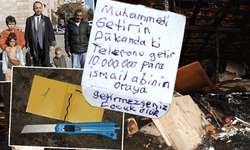 Muhammedi
Getirin
Dükandaki
Telefonu getir
10.000000 para
ismail abinin
oraya
getirmezseniz
Çocuk ölür